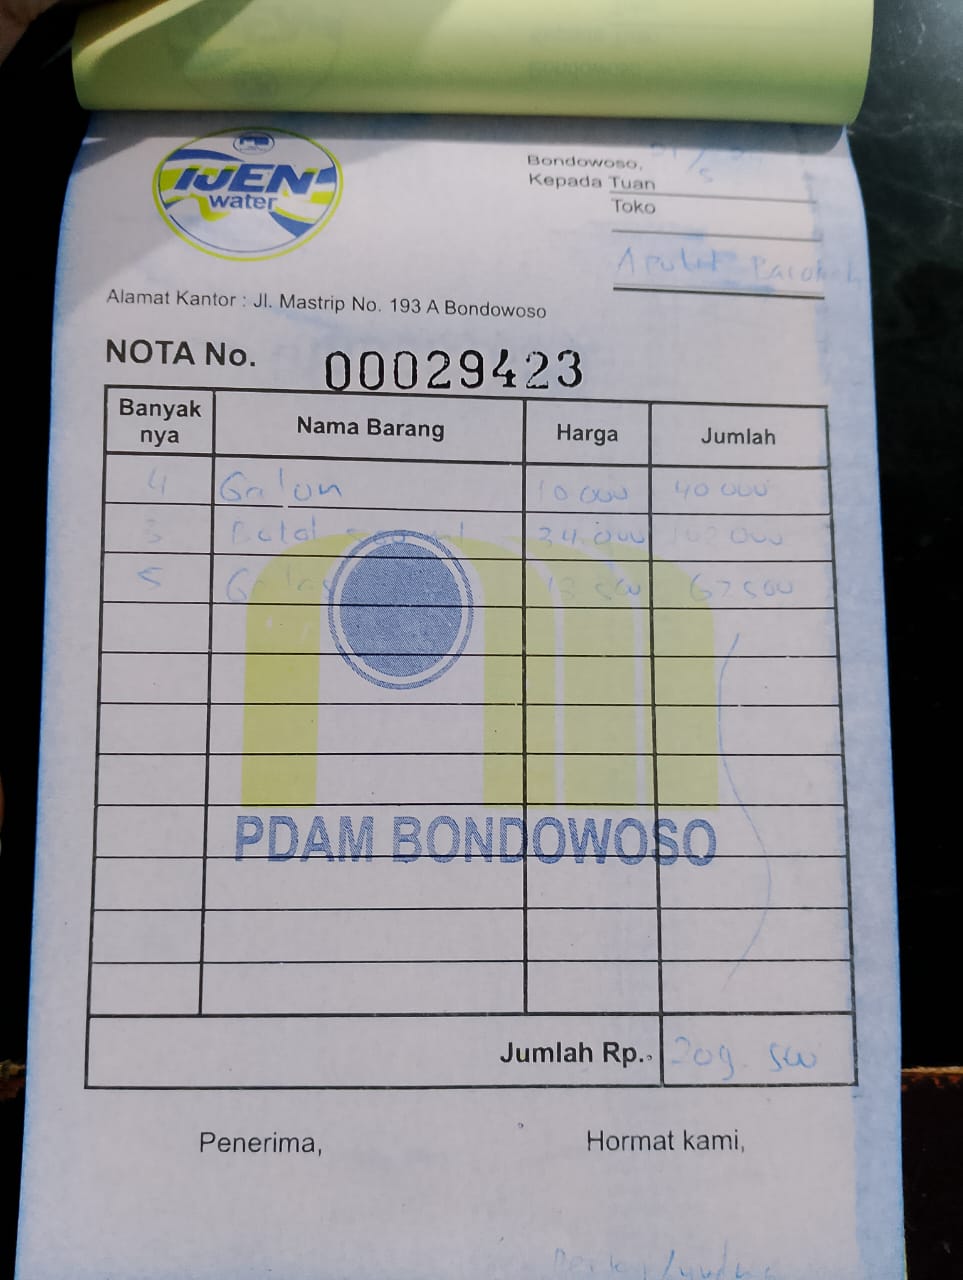 IJEN
water
Bondowoso,
Kepada Tuan
Toko
Alamat Kantor : Jl. Mastrip No. 193 A Bondowoso
NOTA No. 00029423
Banyak nya Nama Barang Harga Jumlah
4 Galon 10 000 40 000
3 Botol 34.000 102 000
5 Gelas 13 500 67 500
PDAM BONDOWOSO
Jumlah Rp. 209.500
Penerima, Hormat kami,